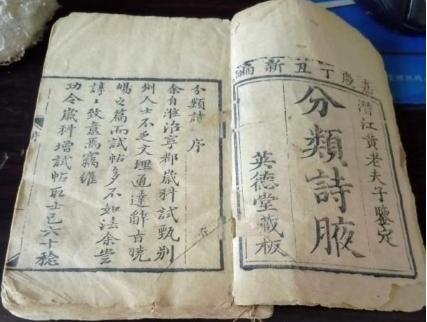 嘉慶丁丑新編
潛江黃老夫子鑒定
分類詩腋
英德堂藏板
分類詩 序
余自治寧都歲科試甄別
州人士不乏文理通達辭旨曉
暢之篇而試帖多不如法余嘗
諄々致意焉竊維
功令歲科增試帖取士已六十稔
序